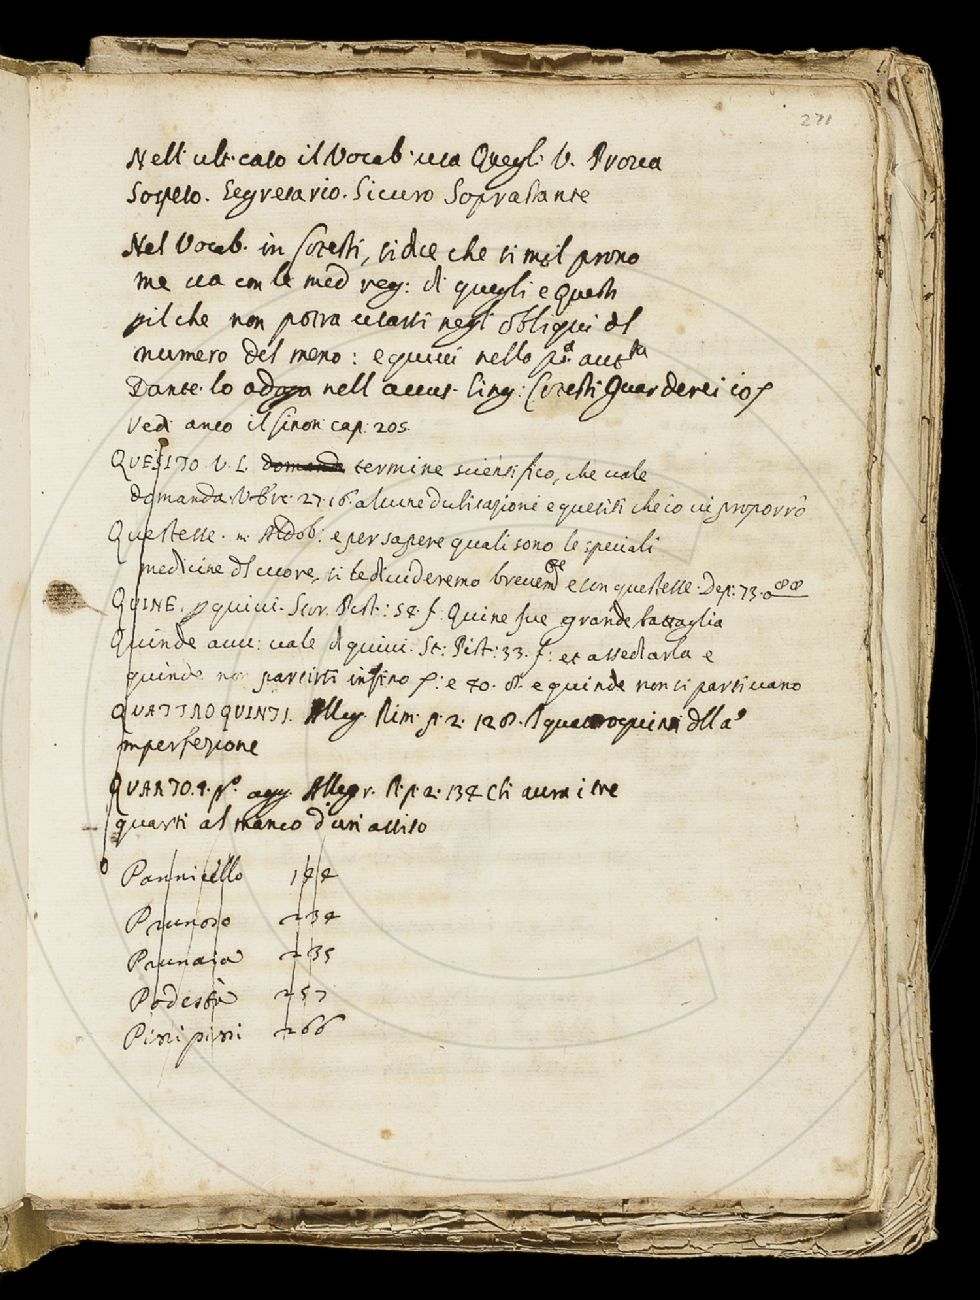 271
Nell ult. caso il Vocab. usa Quegli V. Prova
Sospeso. Segretario. Sicuro Soprastante
Nel Vocab. in Cotesti, si dice che simil prono
me va con le med reg: di quegli e Questi
sil che non potra usarsi negl obliqui dl
numero del meno: e quivi nello
Dante lo nell accus. sing: Cotesti Guarderei io
Vedi anco il Sinon: cap: 205.
QUESITO. V. L. termine scientifico, che vale
domanda. 27.16. alcune dubitazioni e quesiti che io vi proporrò
Questesse. m. Aldob: e per sapere quali sono le speciali
medicine dl cuore, si te diviideremo brevem e con questesse. Dep: 73.
QUINE. quivi. Stor. Pist: 54 f. Quine fue grande battaglia
Quinde avv: vale di quivi. St: Pist: 33. f: et assediarla e
quinde non partirsi insino e 40. e quinde non si partivano
QUATTROQUINTI. Alleg. Rim. p. 2. 128. quattroquinti dlla
imperfezione
QUARTO. agg. Allegr. R. p. 2. 134 Chi avra i tre
quarti al manco d'un assiso
Pannicello 144
Prunoso 234
Prunaia 235
Podestà 257
Pissi pissi 266